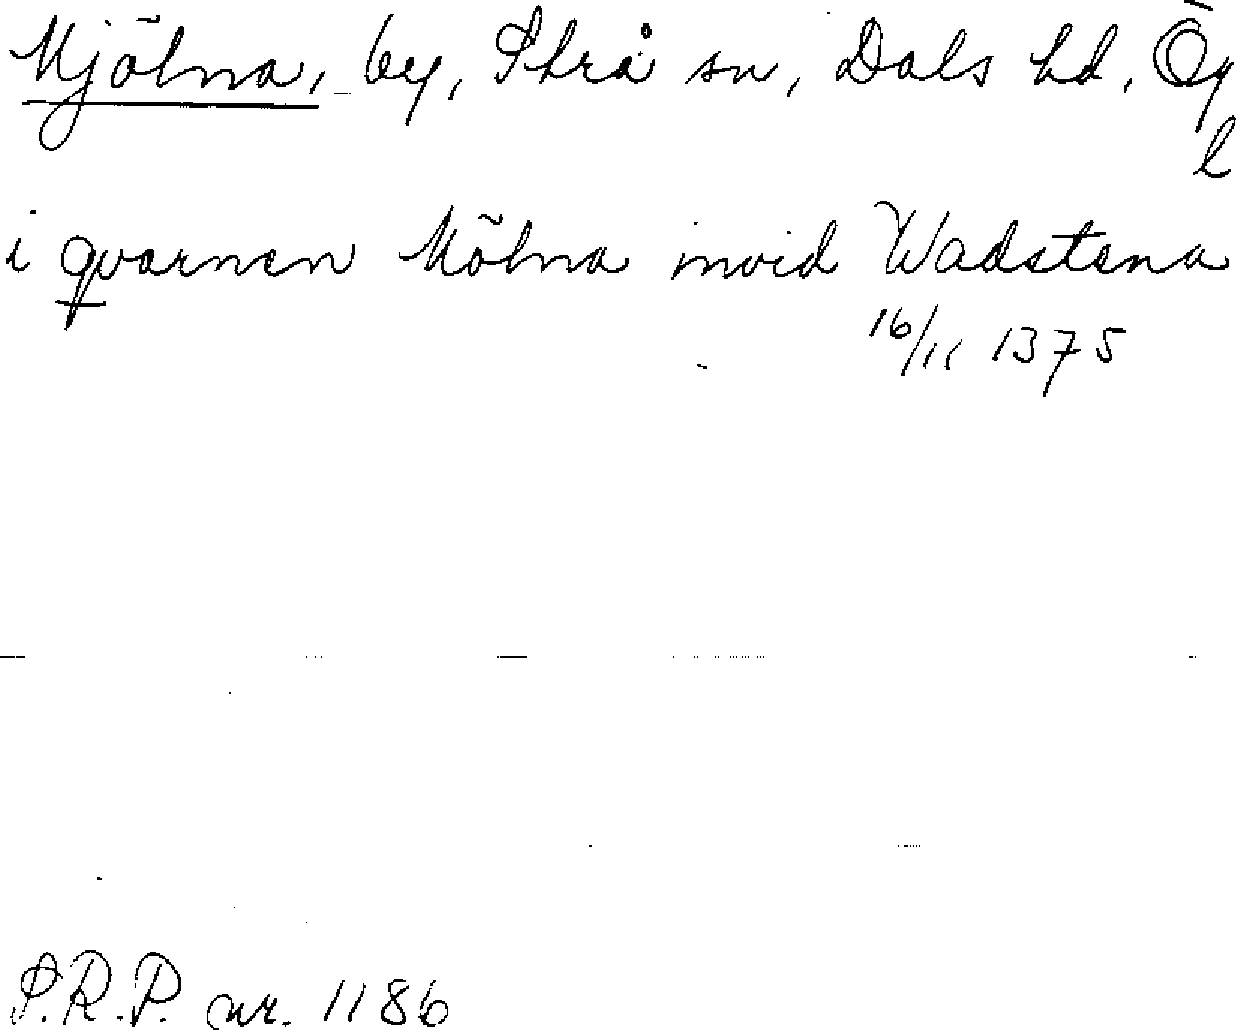 Mjölna, by, Strå sn, Dals hd, Ög
l
i qvarnen Mölna invid Wadstena
16/11 1375
S.R.P. nr. 1186